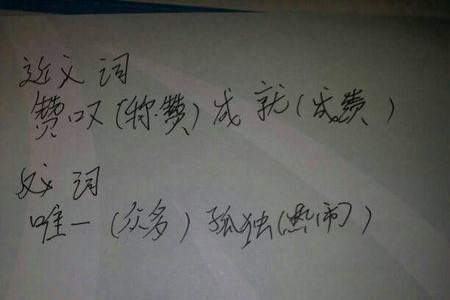 近义词
赞叹(称赞)成就(成赞)
反义词
唯一(众多)孤独(热闹)